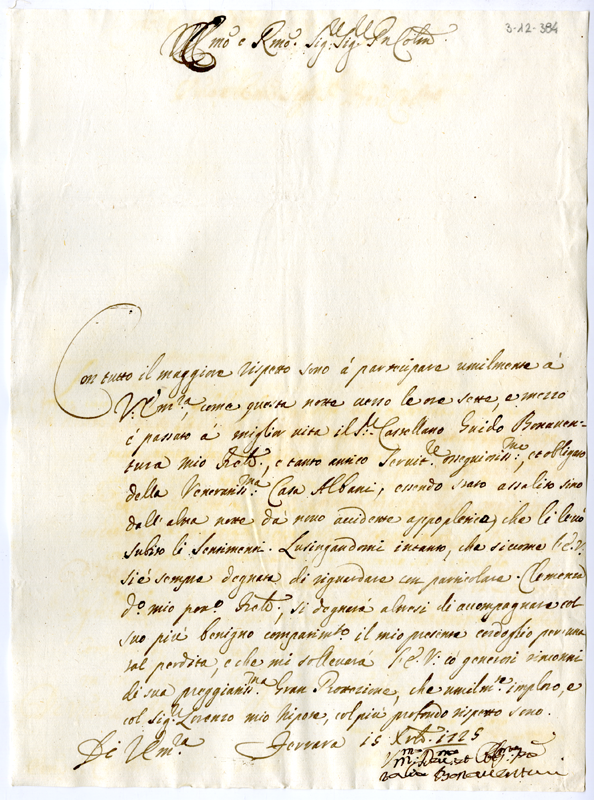 3-12-384
Em.mo e Rmo. Sig.r Sig.r Pn Colmo
Con tutto il maggiore rispetto sono á participare umilmente á
V: Em.za, come questa notte verso le ore sette, e mezzo
é passato á miglior vita il S.r Castellano Guido Bonaven-
tura mio Frat.o, e tanto antico Servit.re ossequiosiss.mo, et obligato
della Venerandiss.ma Casa Albani, essendo stato assalito sino
dall' altra notte dá novo accidente appopletico, che li levó
subito li sentimenti. Lusingandomi intanto, che siccome l'E.V:
si é sempre degnata di riguardare con particolare Clemenza
d.o mio pov.o Frat.o, si degnerá altresi di accompagnare col
suo piú benigno compatim.to il mio presente cordoglio per una
tal perdita, e che mi solleverá l'E.V: có generosi rincontri
di sua preggiatiss.ma Gran Protezione, che umilm.te imploro, e
col Sig.r Lorenzo mio Nipote, col piú profondo rispetto sono.
Di V Em.za Ferrara 15 Xbre 1725
Bonaventura